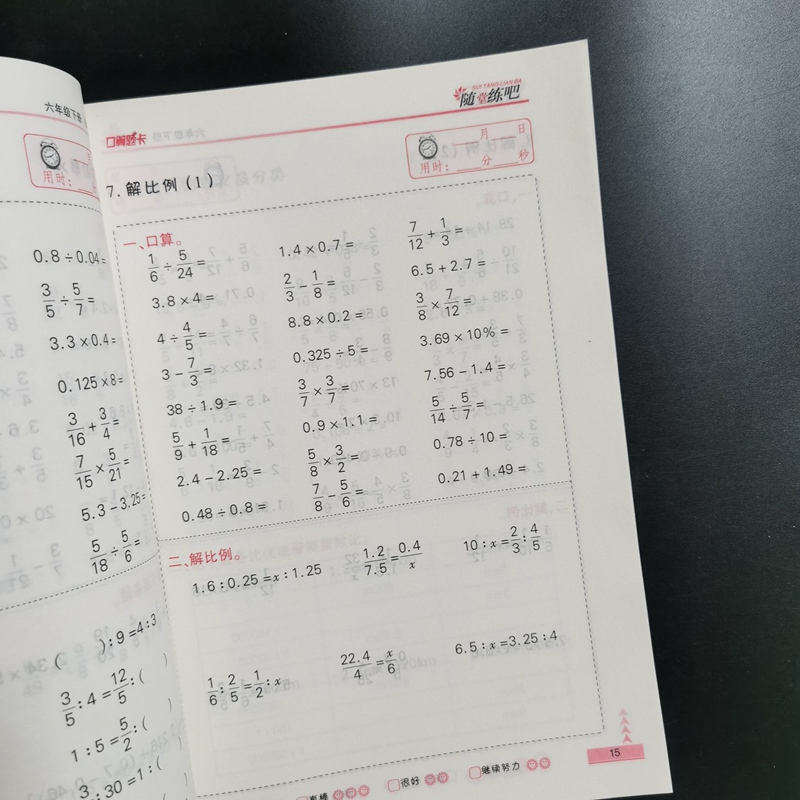 六年级下册
0.8÷0.04=
3/5÷5/7=
3.3×0.4=
0.125×8=
3/16+3/4=
7/15×5/21=
5.3-3.25=
5/18÷5/6=
( ):9=4:3
3/5:4=12/5:( )
1:5=5/2:( )
3/:30=1:( )
口算题卡
SUI TANG LIAN BA
随堂练吧
7.解比例(1)
月 日
用时: 分 秒
用时:
一、口算。
1/6÷5/24= 1.4×0.7= 7/12+1/3=
3.8×4= 2/3-1/8= 6.5+2.7=
4÷4/5= 8.8×0.2= 3/8×7/12=
3-7/3= 0.325÷5= 3.69×10%=
38÷1.9= 3/7×3/7= 7.56-1.4=
5/9+1/18= 0.9×1.1= 5/14÷5/7=
2.4-2.25= 5/8×3/2= 0.78÷10=
0.48÷0.8= 7/8-5/6= 0.21+1.49=
二、解比例。
1.6:0.25=x:1.25 1.2/7.5=0.4/x 10:x=2/3:4/5
1/6:2/5=1/2:x 22.4/4=x/6 6.5:x=3.25:4
15
真棒 很好 继续努力